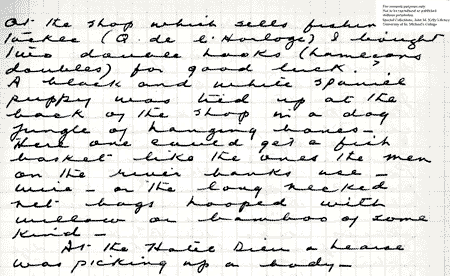 For research purposes only
Not to be reproduced or published
without permission
Special Collections, John M. Kelly Library
University of St. Michael's College
At the shop which sells fishing
tackle (Q. de l'Horloge) I bought
two double hooks (hameçons
doubles) for good luck.
A black and white spaniel
puppy was tied up at the
back of the shop in a dog
jungle of hanging canes -
Here one could get a fish
basket like the ones the men
on the river banks use -
wire - or the long necked
net bags hooped with
willow or bamboo of some
kind -
At the Hotel Dieu a hearse
was picking up a body -